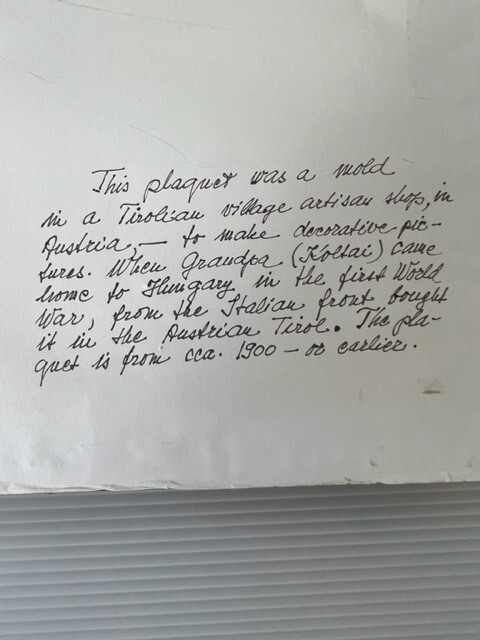 This plaquet was a mold
in a Tirolian village artisan shop, in
Austria, — to make decorative pic-
tures. When Grandpa (Koltai) came
home to Hungary in the first World
War, from the Italian front bought
it in the Austrian Tirol. The pla-
quet is from cca. 1900 — or earlier.